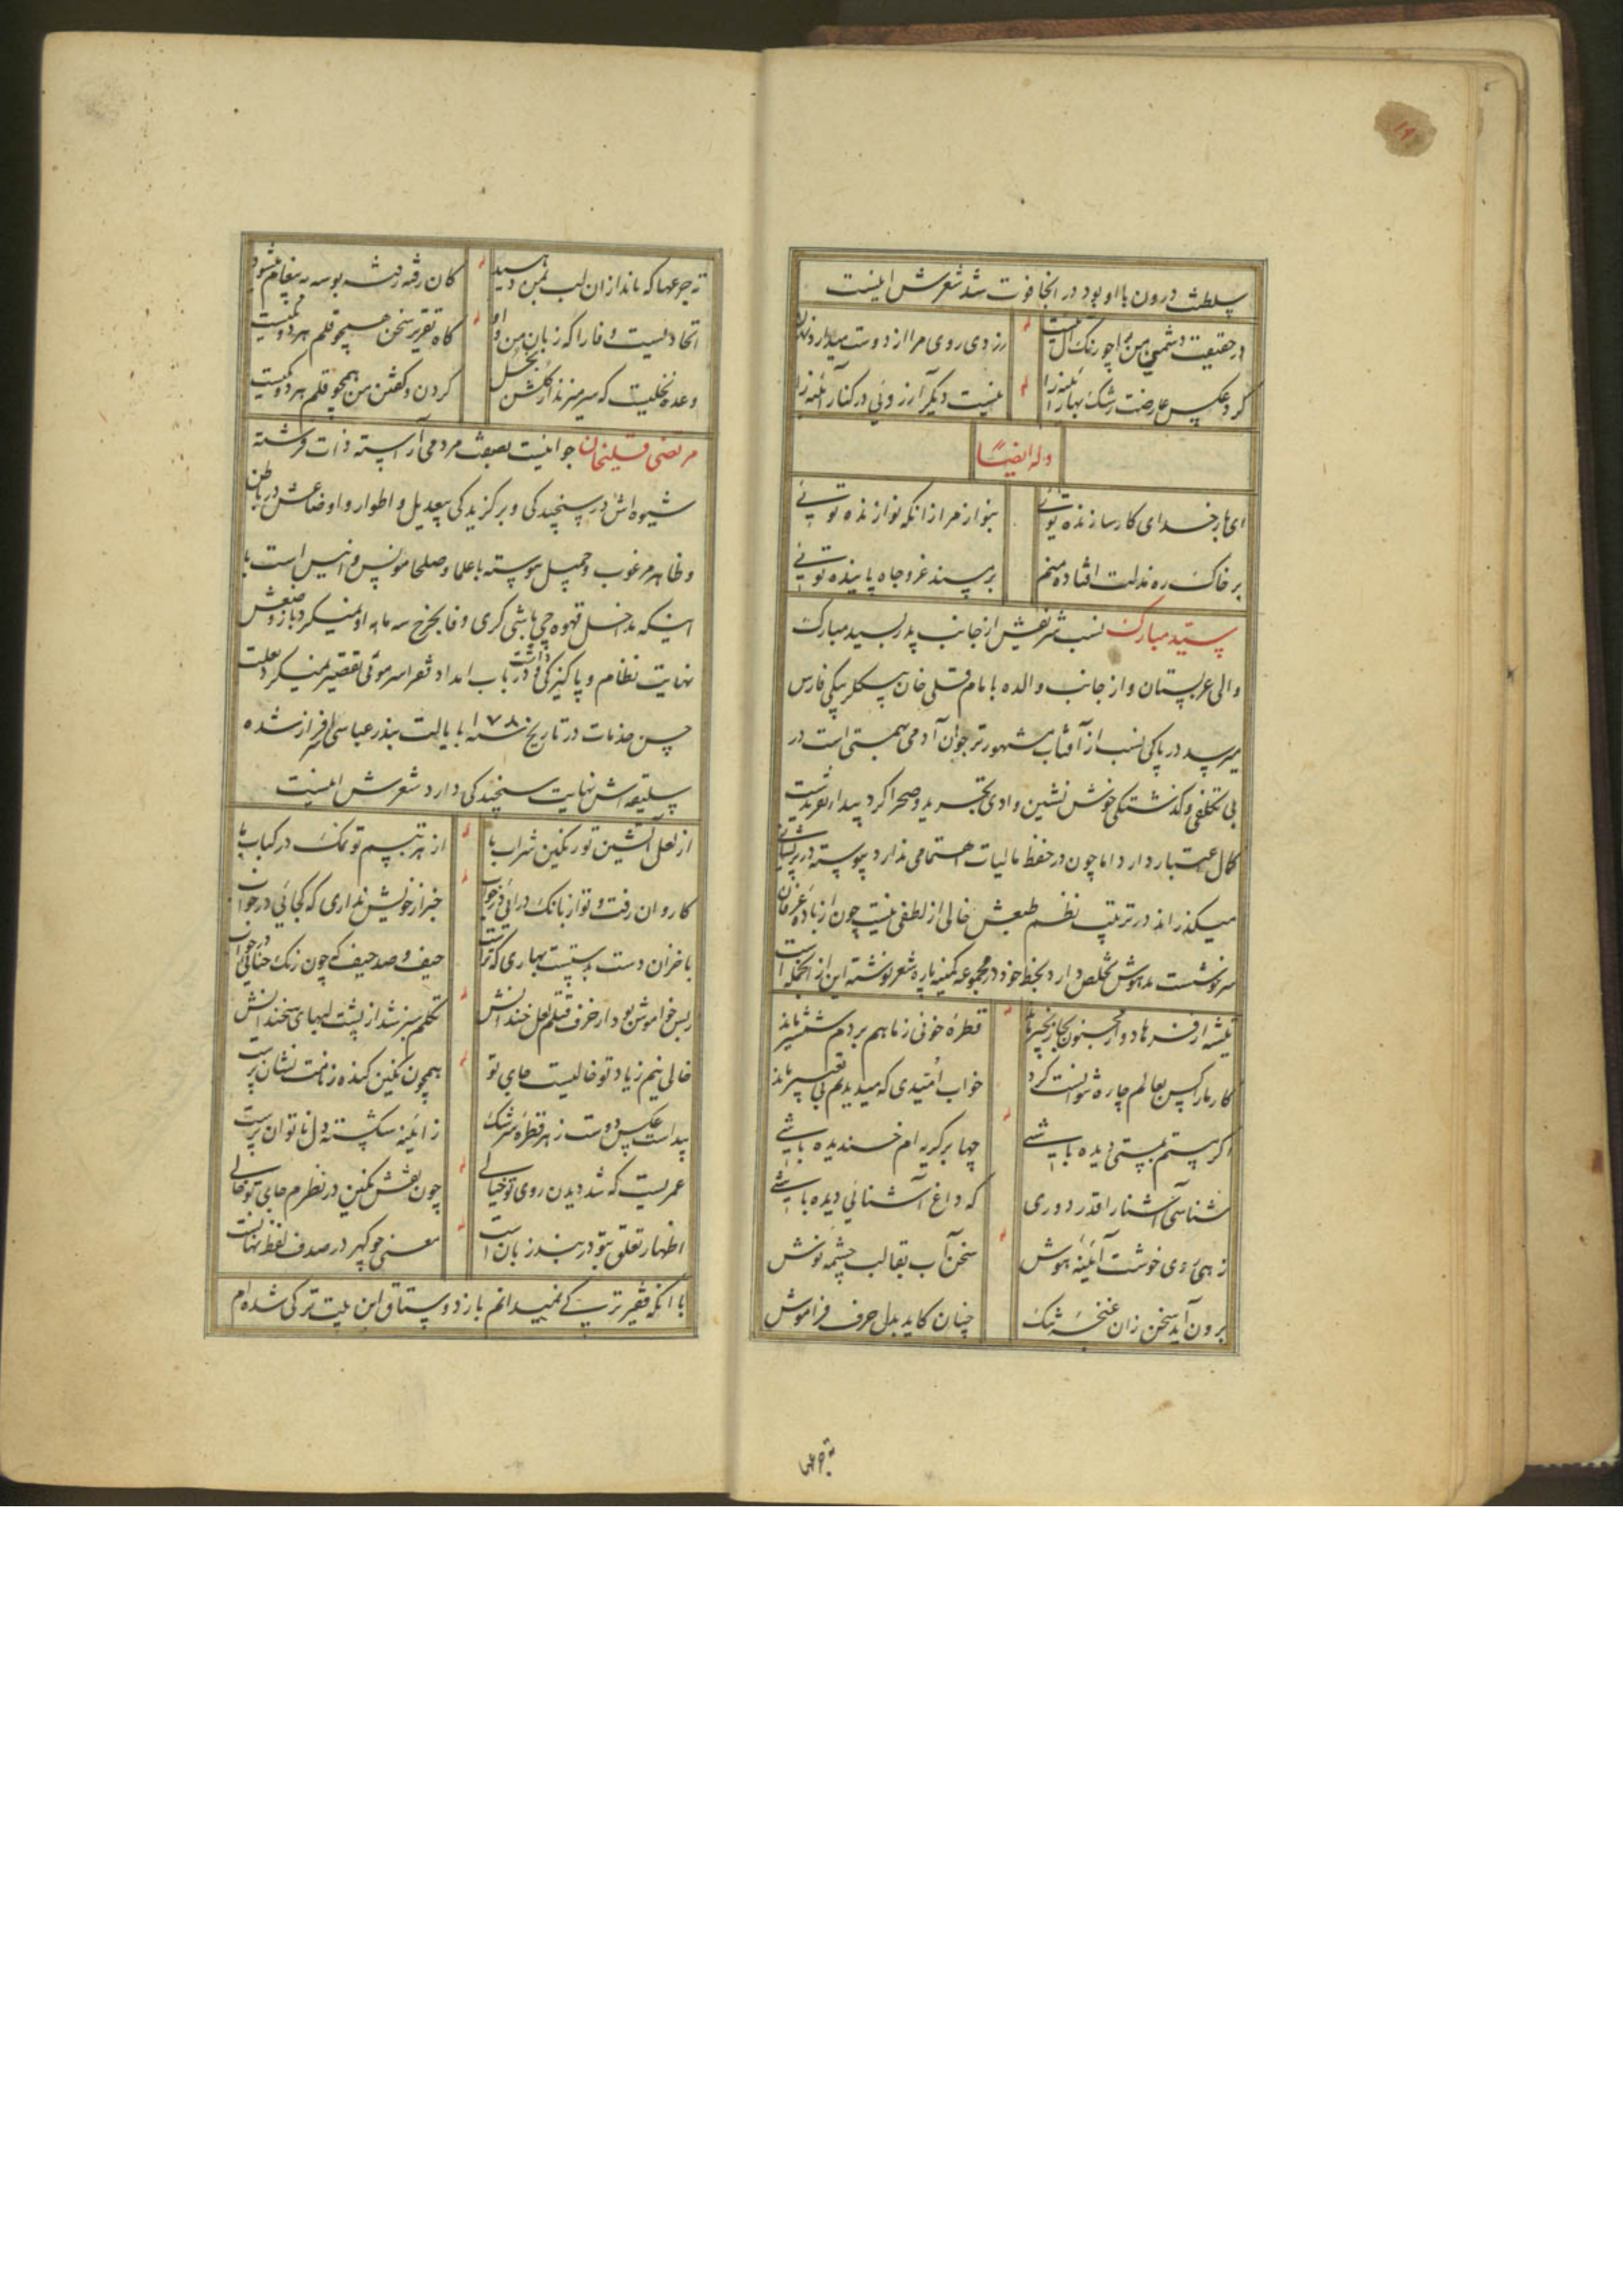 سلطنت درون با او بود در انجا فوت شد شعرش اینست
در حقیقت دشمن من چو رنک آل نیست
زردی روی مرا از دوست میدارد نهان
کرد عکس عارضت رشک بهار آئینه را
نیست دیکر آرزوئی در کنار آئینه را
وله ایضًا
ای بار خدای کارسازنده توئی
بنواز مرا زانکه نوازنده توئی
بر خاک ره مذلت افتاده منم
بر مسند عز و جاه پاینده توئی
سید مبارک نسب شریفش از جانب پدر بسید مبارک
والی عربستان و از جانب والده بامام قلی خان بیکلر بیکی فارس
میرسد در پاکی نسب از آفتاب مشهورتر جوان آدمی همتی است در
بی تکلفی و کذشتکی خوش نشین وادی تجرید و صحرا کرد
کمال اعتبار دارد اما چون در حفظ مالیات اهتمامی ندارد پیوسته در پریشانی
میکذراند در ترتیب نظم طبعش خالی از لطفی نیست چون از باده عرفان
سرخوشست مدهوش تخلص دارد بخط خود در مجموعه کمینه پاره شعر نوشته این از انجمله است
تیشه از فرهاد و از مجنون بجا زنجیر ماند
قطره خونی ز ما هم بر دم شمشیر ماند
کار ما را کس بعالم چاره نتوانست کرد
خواب امیدی که میدیدیم بی تعبیر ماند
اکر هستم بمستی دیده باشی
چها بر کریه ام خندیده باشی
شناسی آشنا را قدر دوری
که داغ آشنائی دیده باشی
زهی روی خوشت آئینه هوش
سخن آب بقا لب چشمه نوش
برون آید سخن زان غنچه تنک
چنان کاید بدل حرف فراموش
ته جرعها
ته جرعها که ماند از ان لب بمن رسید
کان رفته رفته بوسه به پیغام میشود
اتحاد نیست وفا را که زبان من و او
کاه تقریر سخن همچو قلم هر دو یکیست
وعده نخلیست که سر میزند از کلشن بخل
کردن و کفتن من همچو قلم هر دو یکیست
مرتضی قلیخان جوانیست بصفت مردمی آراسته ذات فرشته
شیوه اش در سنجیدکی و برکزیدکی بیعدیل و اطوار و اوضاعش در باطن
و ظاهر مرغوب و جمیل پیوسته با علما و صلحا مونس و انیس است با
اینکه مداخل قهوه چی باشی کری وفا بخرج سه ماهه او نمیکرد باز وضعش
نهایت نظام و پاکیزکی داشت و در باب امداد شعرا سر موئی تقصیر نمیکرد بعلت
حسن خدمات در تاریخ سنه ۱۰۷۸ بایالت بندر عباسی سرافراز شده
سلیقه اش نهایت سنجیدکی دارد شعرش اینست
از لعل آتشین تو رنکین شراب ما
از هر تبسم تو نمک در کباب ما
کاروان رفت و تو از بانک درائی در خواب
خبر از خویش نداری که کجائی در خواب
با خزان دست بدستست بهاری که تراست
حیف و صد حیف که چون رنک حنائی در خواب
ز بس خاموش بود از حرف قتلم لعل خندانش
تکلم سبز شد از پشت لبهای سخندانش
خالی نیم ز یاد تو خالیست جای تو
همچون نکین کنده ز نامت نشان پرست
پیداست عکس دوست ز هر قطره سرشک
ز آئینه شکسته دل ناتوان پرست
عمریست که شد دیدن روی تو خیالی
چون نقش نکین در نظرم جای تو خالی
اظهار تعلق بتو در بند زبان است
معنی چو کهر در صدف لفظ نهانست
با انکه فقیر ترکی نمیدانم باز دوستاق این بیت ترکی شده ام